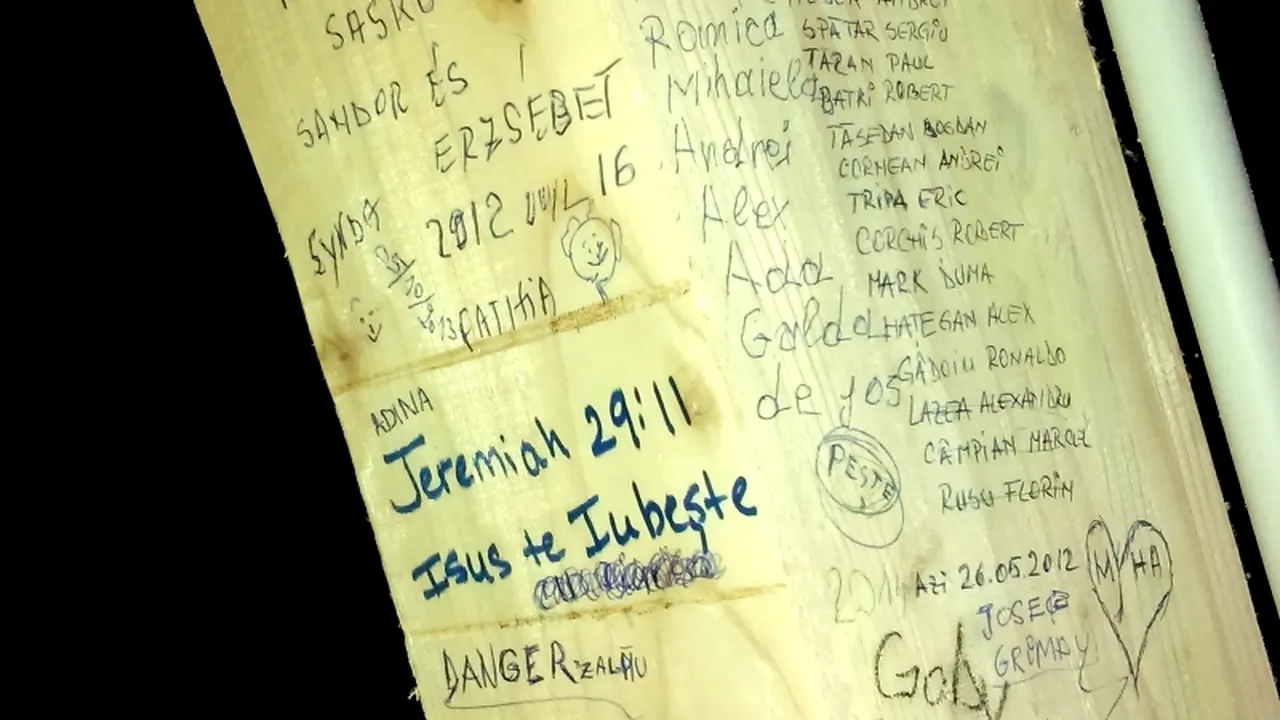 SANDOR ÉS
ERZSEBET
2012 JUL 16
SYNDA
FATIHA
ADINA
Jeremiah 29:11
Isus te Iubește
DANGER ZALĂU
Romica
Mihaiela
Andrei
Alex
Ada
Galda
de jos
PESTE
SPĂTAR SERGIU
TĂRAN PAUL
BATRI ROBERT
TĂSEDAN BOGDAN
CORMEAN ANDREI
TRIPA ERIC
CORCHIS ROBERT
MARK DUMA
HATEGAN ALEX
GĂDOIU RONALDO
LAZEA ALEXANDRU
CÂMPIAN MARCEL
RUSU FLORIN
2014
Azi 26.05.2012
M HA
Gaby